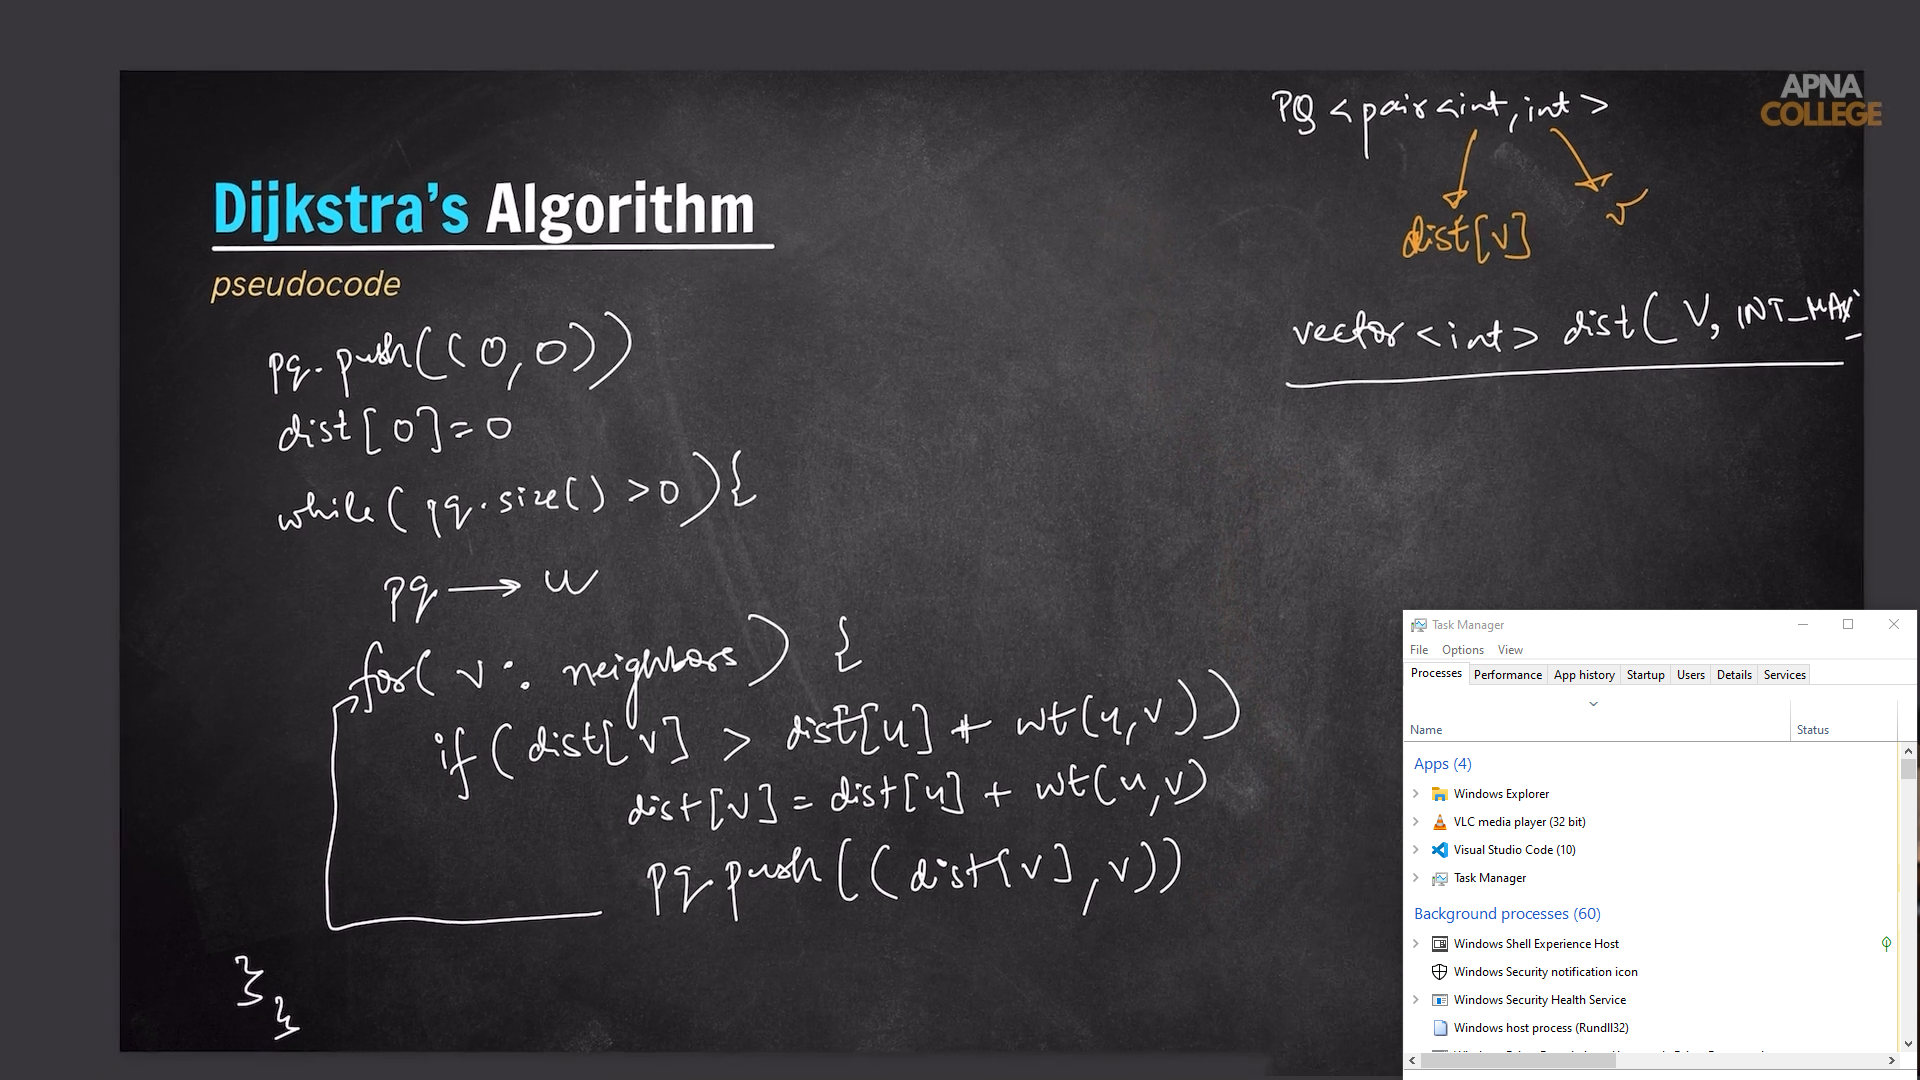 APNA
COLLEGE
PQ <pair<int, int>
dist[v]
v
vector <int> dist( V, INT_MAX
Dijkstra's Algorithm
pseudocode
pq.push((0,0))
dist[0]=0
while( pq.size() >0 ){
pq → u
for( v : neighbors) {
if( dist[v] > dist[u] + wt(u,v))
dist[v] = dist[u] + wt(u,v)
pq.push((dist[v], v))
}
}
Task Manager
File Options View
Processes Performance App history Startup Users Details Services
Name Status
Apps (4)
Windows Explorer
VLC media player (32 bit)
Visual Studio Code (10)
Task Manager
Background processes (60)
Windows Shell Experience Host
Windows Security notification icon
Windows Security Health Service
Windows host process (Rundll32)